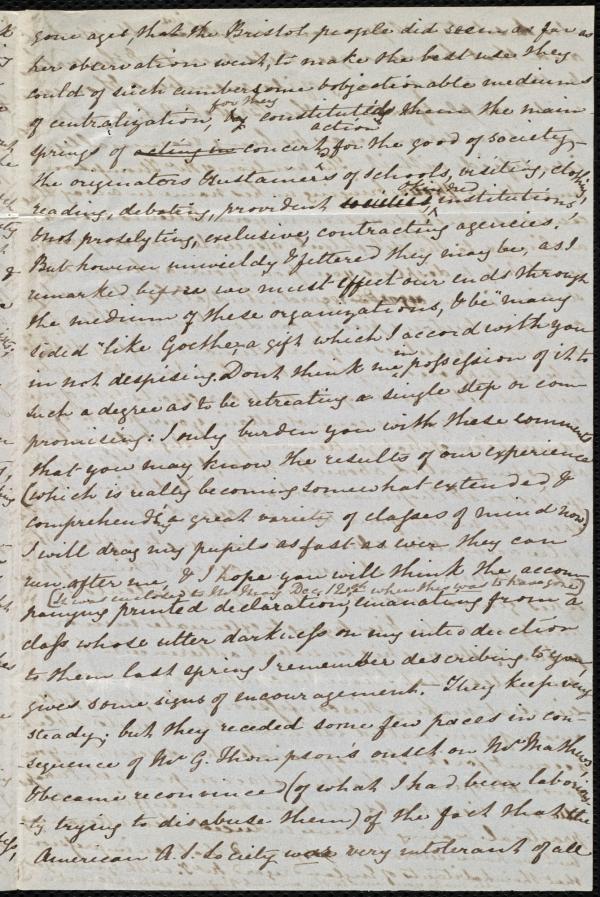 gone ages that the Bristol people did seem as far as
her observation went, to make the best use they
could of such cumbersome & objectionable mediums
of centralization, for they constituted them the main-
springs of acting in concert action, for the good of society,
the originators & sustainers of schools, visiting, clothing,
reading, debating, provident societies, & kindred institutions
& not proselyting, exclusive, contracting agencies."
But however unwieldy & fettered they may be, as I
remarked before we must effect our ends through
the medium of these organizations, & be "many
sided" like Goethe, a gift which I accord with you
in not despising. Dont think me in possession of it to
such a degree as to be retreating a single step or com-
promising: I only burden you with these comments
that you may know the results of our experience
(which is really becoming somewhat extended, &
comprehending a great variety of classes of mind now)
I will drag my pupils as fast as ever they can
run after me, & I hope you will think the accom-
(It was enclosed to Mr May Dec. 12th when this was to have gone)
panying printed declaration, emanating from a
class whose utter darkness on my introduction
to them last spring I remember describing to you,
gives some signs of encouragement. They keep very
steady; but they receded some few paces in con-
sequence of Mr G. Thompson's onset on Mr Mathews,
& became reconvinced (of what I had been labouring
trying to disabuse them) of the fact that the
American A. S. Society was very intolerant of all